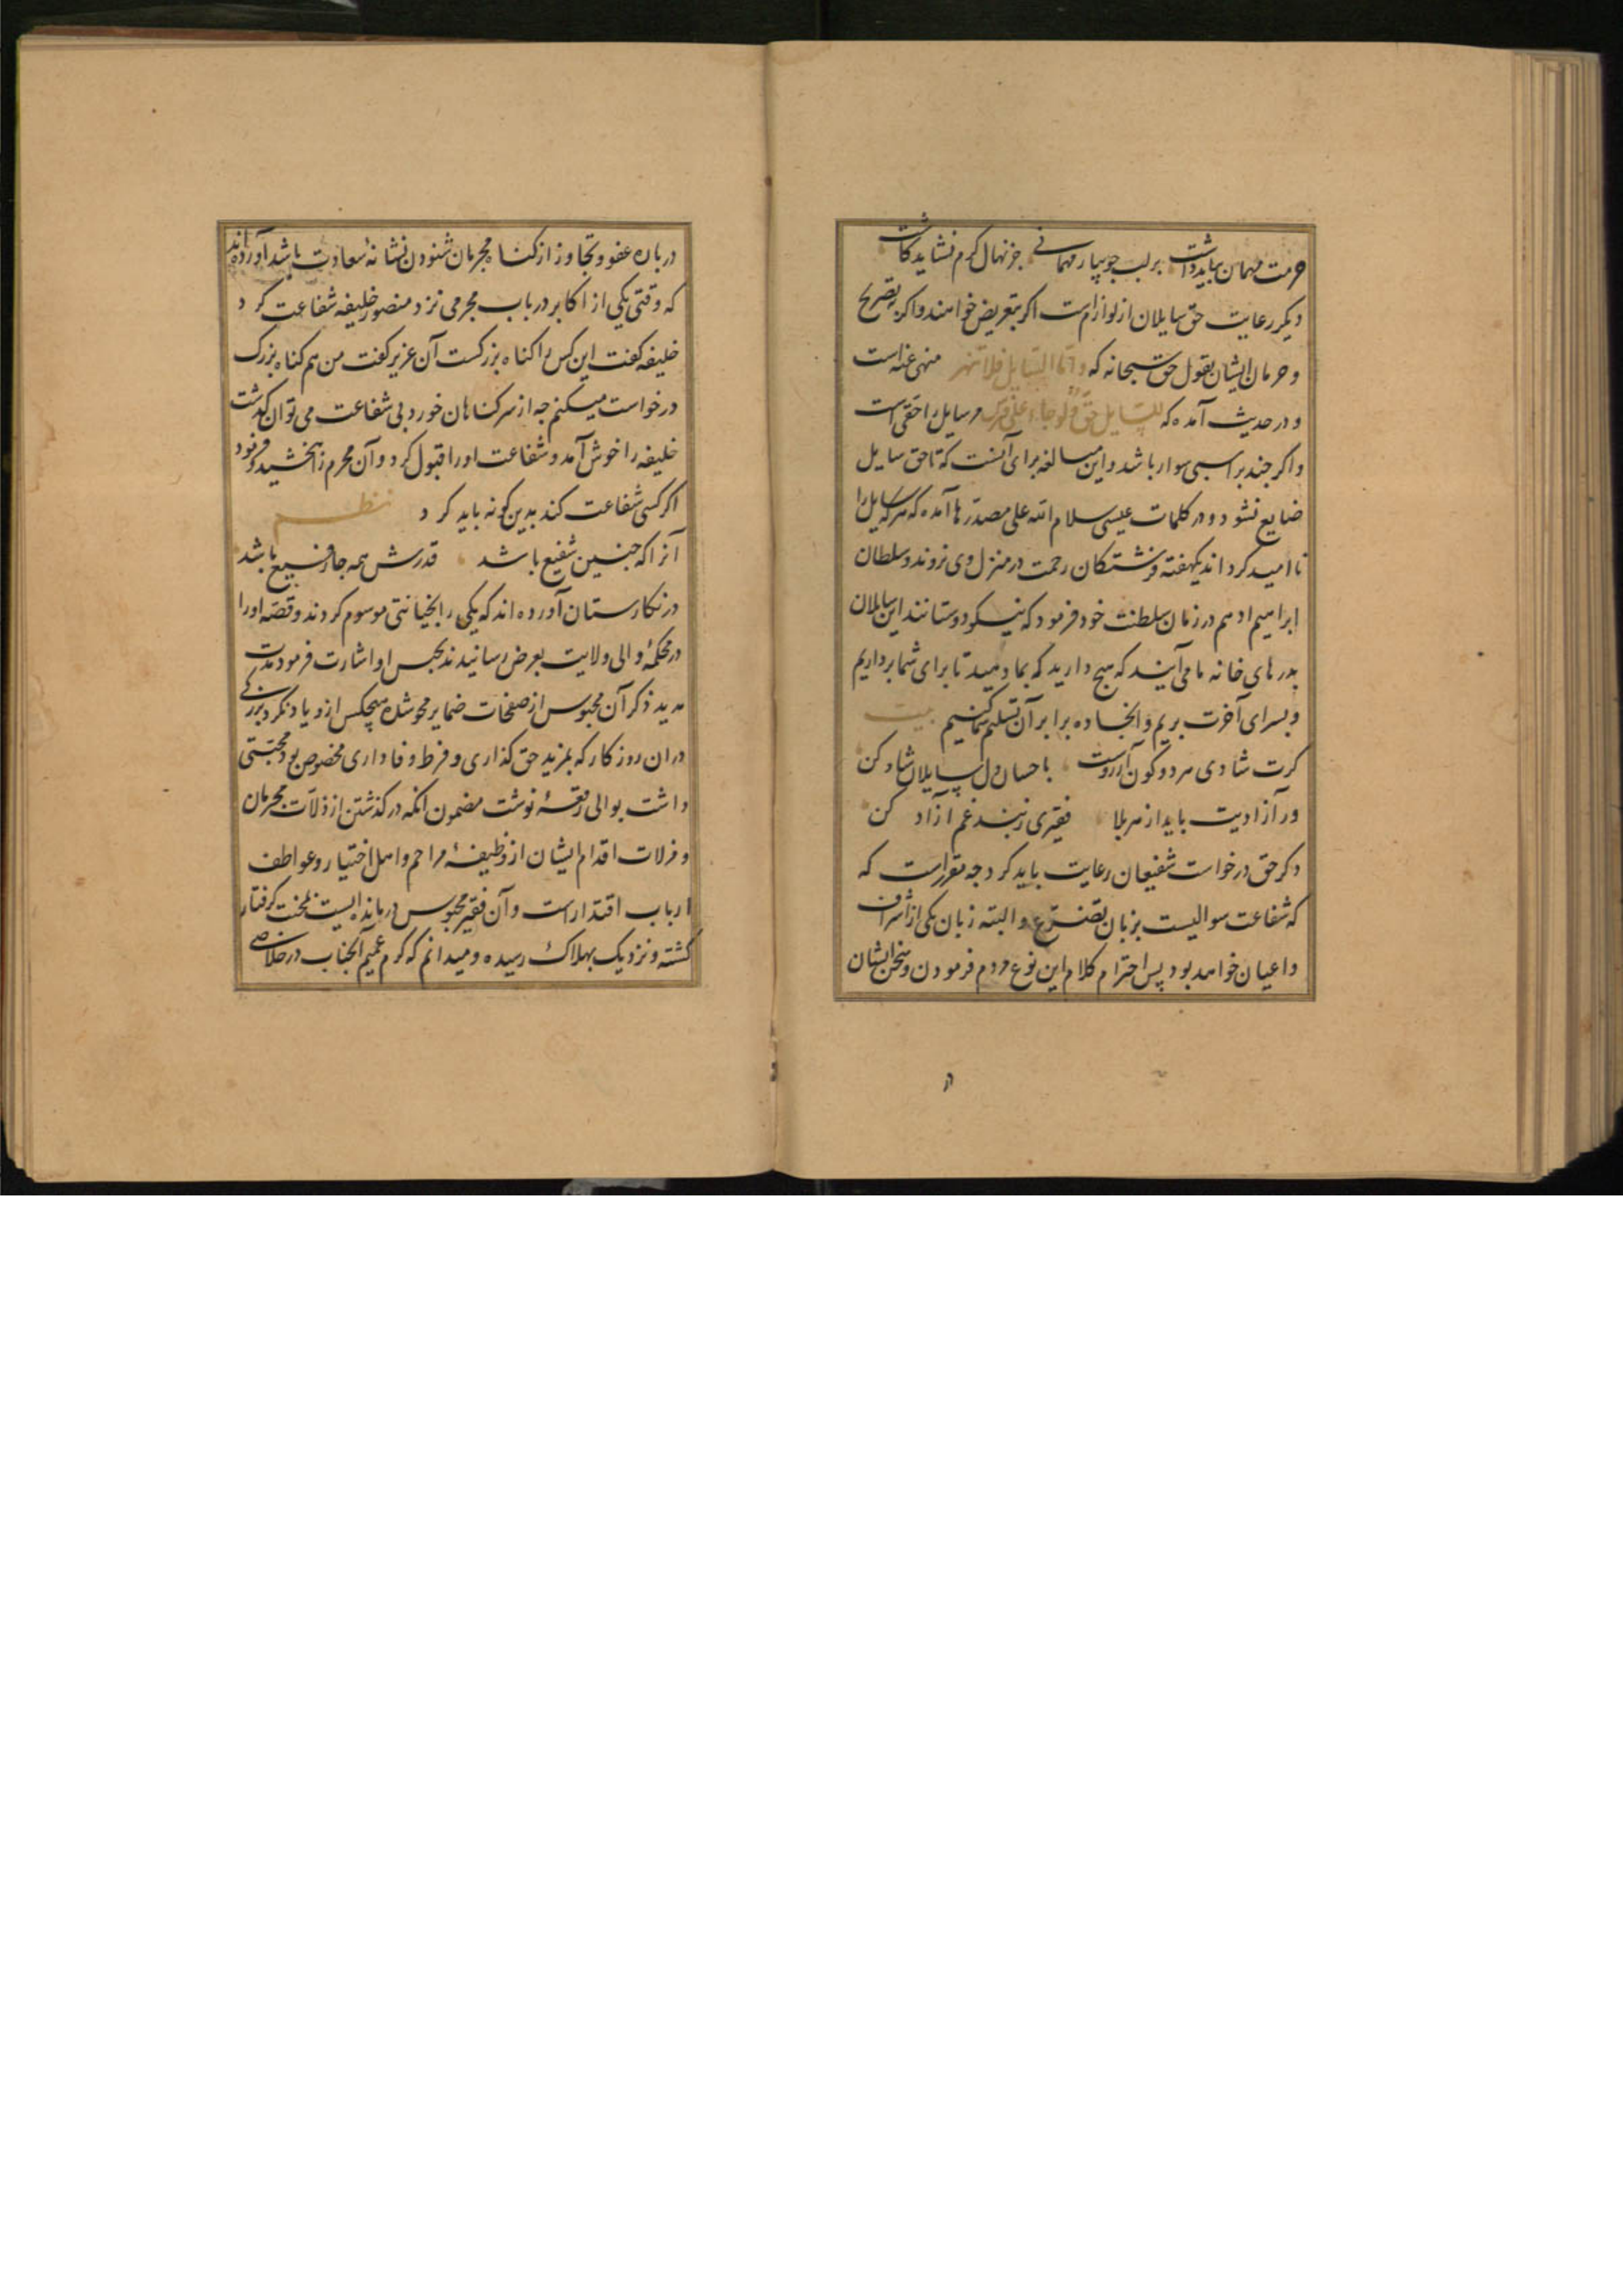 حرمت مهمان بباید داشت بر لب جویبار مهمانے جز نهال کرم نشاید کاشت
دیکر رعایت حق سایلان از لوازم است اکر بتعریض خواهند واکر بتصریح
و حرمان ایشان بقول حق سبحانه که واما السایل فلا تنهر منهی عنه است
و در حدیث آمده که للسایل حق ولو جاء علی فرس مر سایل را حقی است
واکر جند بر اسبی سوار باشد و این مبالغه برای آنست که تا حق سایل
ضایع نشود و در کلمات عیسی سلام الله علی مصدرها آمده که هر که سایل را
نا امید کرداند یکهفته فرشتکان رحمت در منزل وی نروند و سلطان
ابراهیم ادهم در زمان سلطنت خود فرمود که نیکو دوستانند این سایلان
بدرهای خانه ما می آیند که هیج دارید که بما دهید تا برای شما برداریم
و بسرای آخرت بریم و آنجا ده برابر آن تسلیم شما کنیم بیت
کرت شادی هر دو کون آرزوست باحسان دل سایلان شاد کن
ور آزادیت باید از هر بلا فقیری ز بند غم آزاد کن
دکر حق درخواست شفیعان رعایت باید کرد جه مقررست که
که شفاعت سوالیست بزبان تضرع و البته زبان یکی از اشراف
و اعیان خواهد بود پس احترام کلام این نوع مردم فرمودن و سخن ایشان
در
درباره عفو و تجاوز از کناه مجرمان شنودن نشانهٔ سعادت باشد آورده اند
که وقتی یکی از اکابر در باب مجرمی نزد منصور خلیفه شفاعت کرد
خلیفه کفت این کس را کناه بزرکست آن عزیز کفت من هم کناه بزرک
درخواست میکنم جه از سر کناهان خورد بی شفاعت می توان کذشت
خلیفه را خوش آمد و شفاعت او را قبول کرد و آن مجرم را بخشید و فرمود
اکر کسی شفاعت کند بدین کونه باید کرد نظم
آنرا که جنین شفیع باشد قدرش همه جا رفیع باشد
در نکارستان آورده اند که یکی را بخیانتی موسوم کردند و قصه او را
در محکمهٔ والی ولایت بعرض رسانیدند بحبس او اشارت فرمود مدت
مدید ذکر آن محبوس از صفحات ضمایر محو شد هیچکس از و یاد نکرد بزرکے
دران روزکار که بمزید حق کذاری و فرط وفاداری مخصوص بود محبتی
داشت بوالی رقعهٔ نوشت مضمون انکه درکذشتن از ذلات مجرمان
و مزلات اقدام ایشان از وظیفهٔ مراحم و اهل اختیار و عواطف
ارباب اقتدارست و آن فقیر محبوس درمانده ایست بمحنت کرفتار
کشته و نزدیک بهلاک رسیده و میدانم که کرم عمیم آنجناب در خلاصے